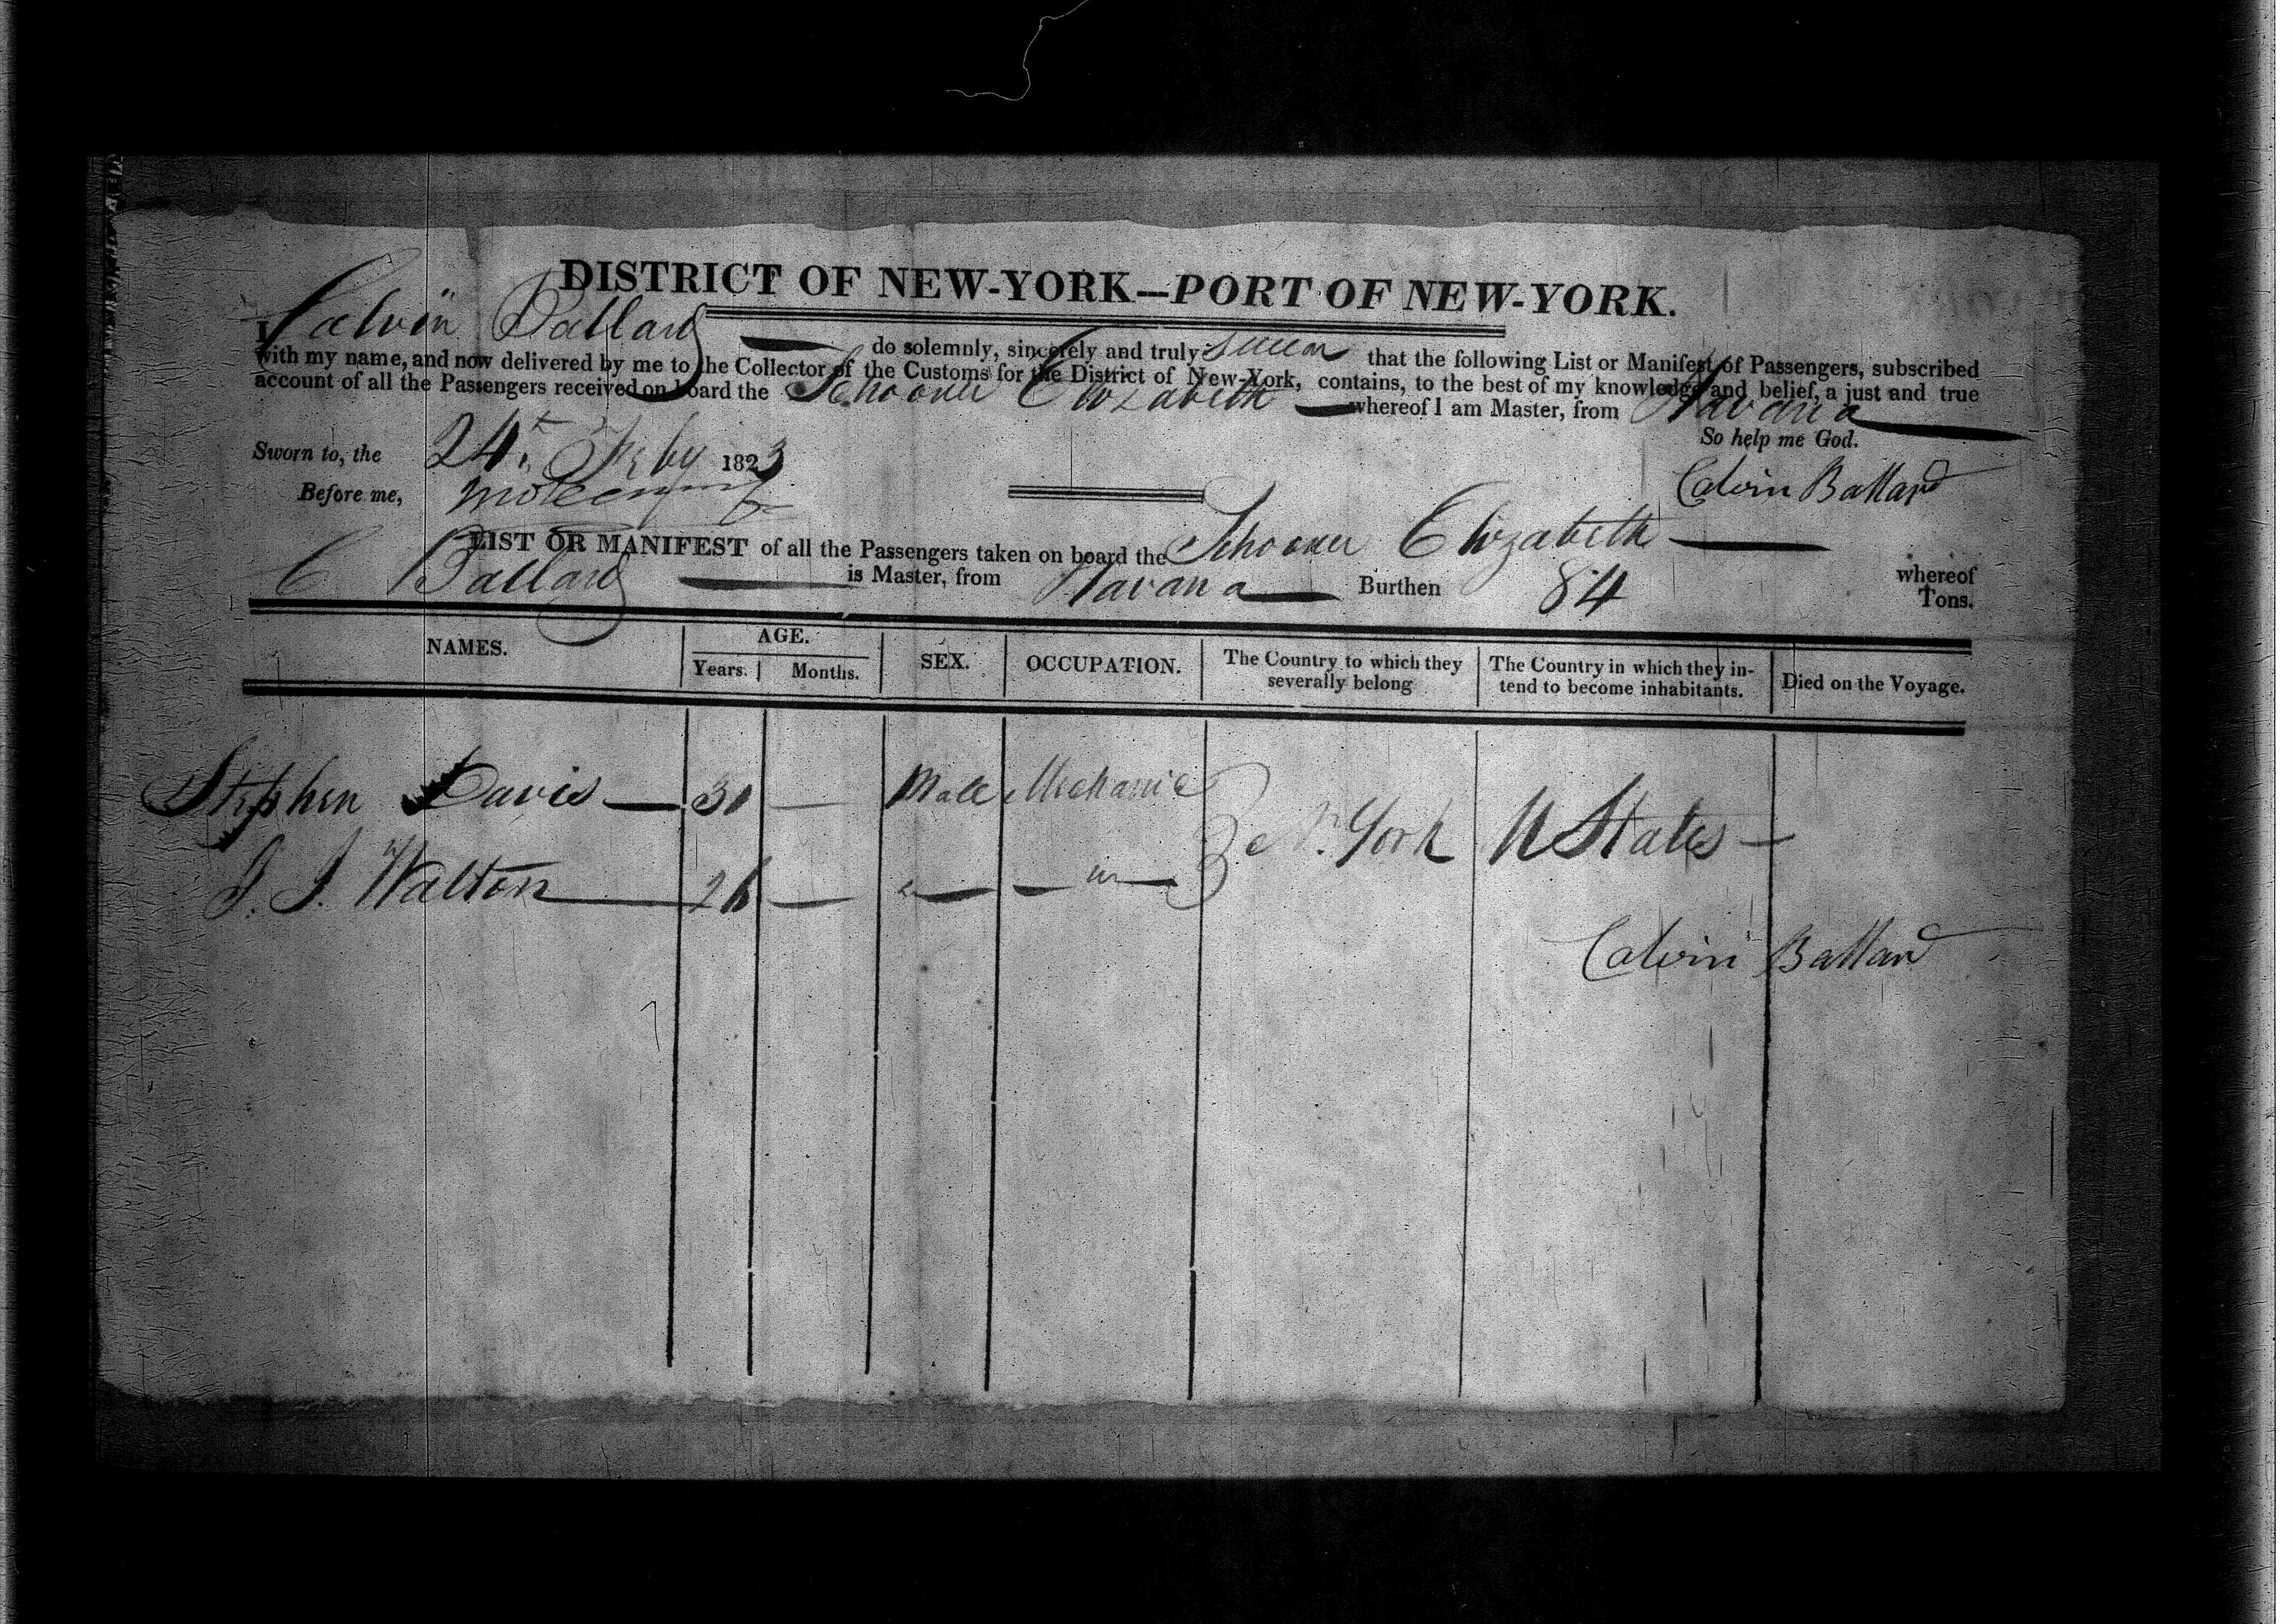 DISTRICT OF NEW-YORK—PORT OF NEW-YORK.
I Calvin Ballard do solemnly, sincerely and truly swear that the following List or Manifest of Passengers, subscribed
with my name, and now delivered by me to the Collector of the Customs for the District of New-York, contains, to the best of my knowledge and belief, a just and true
account of all the Passengers received on board the Schooner Elizabeth whereof I am Master, from Havana
So help me God.
Sworn to, the 24th Feby 1823
Calvin Ballard
Before me,
LIST OR MANIFEST of all the Passengers taken on board the Schooner Elizabeth whereof
C Ballard is Master, from Havana Burthen 84 Tons.
NAMES. AGE. SEX. OCCUPATION. The Country to which they severally belong The Country in which they in-tend to become inhabitants. Died on the Voyage.
Years. Months.
Stephen Davis — 30 — Male Mechanic
N. York U States —
J. J. Walton — 26 — " — "
Calvin Ballard